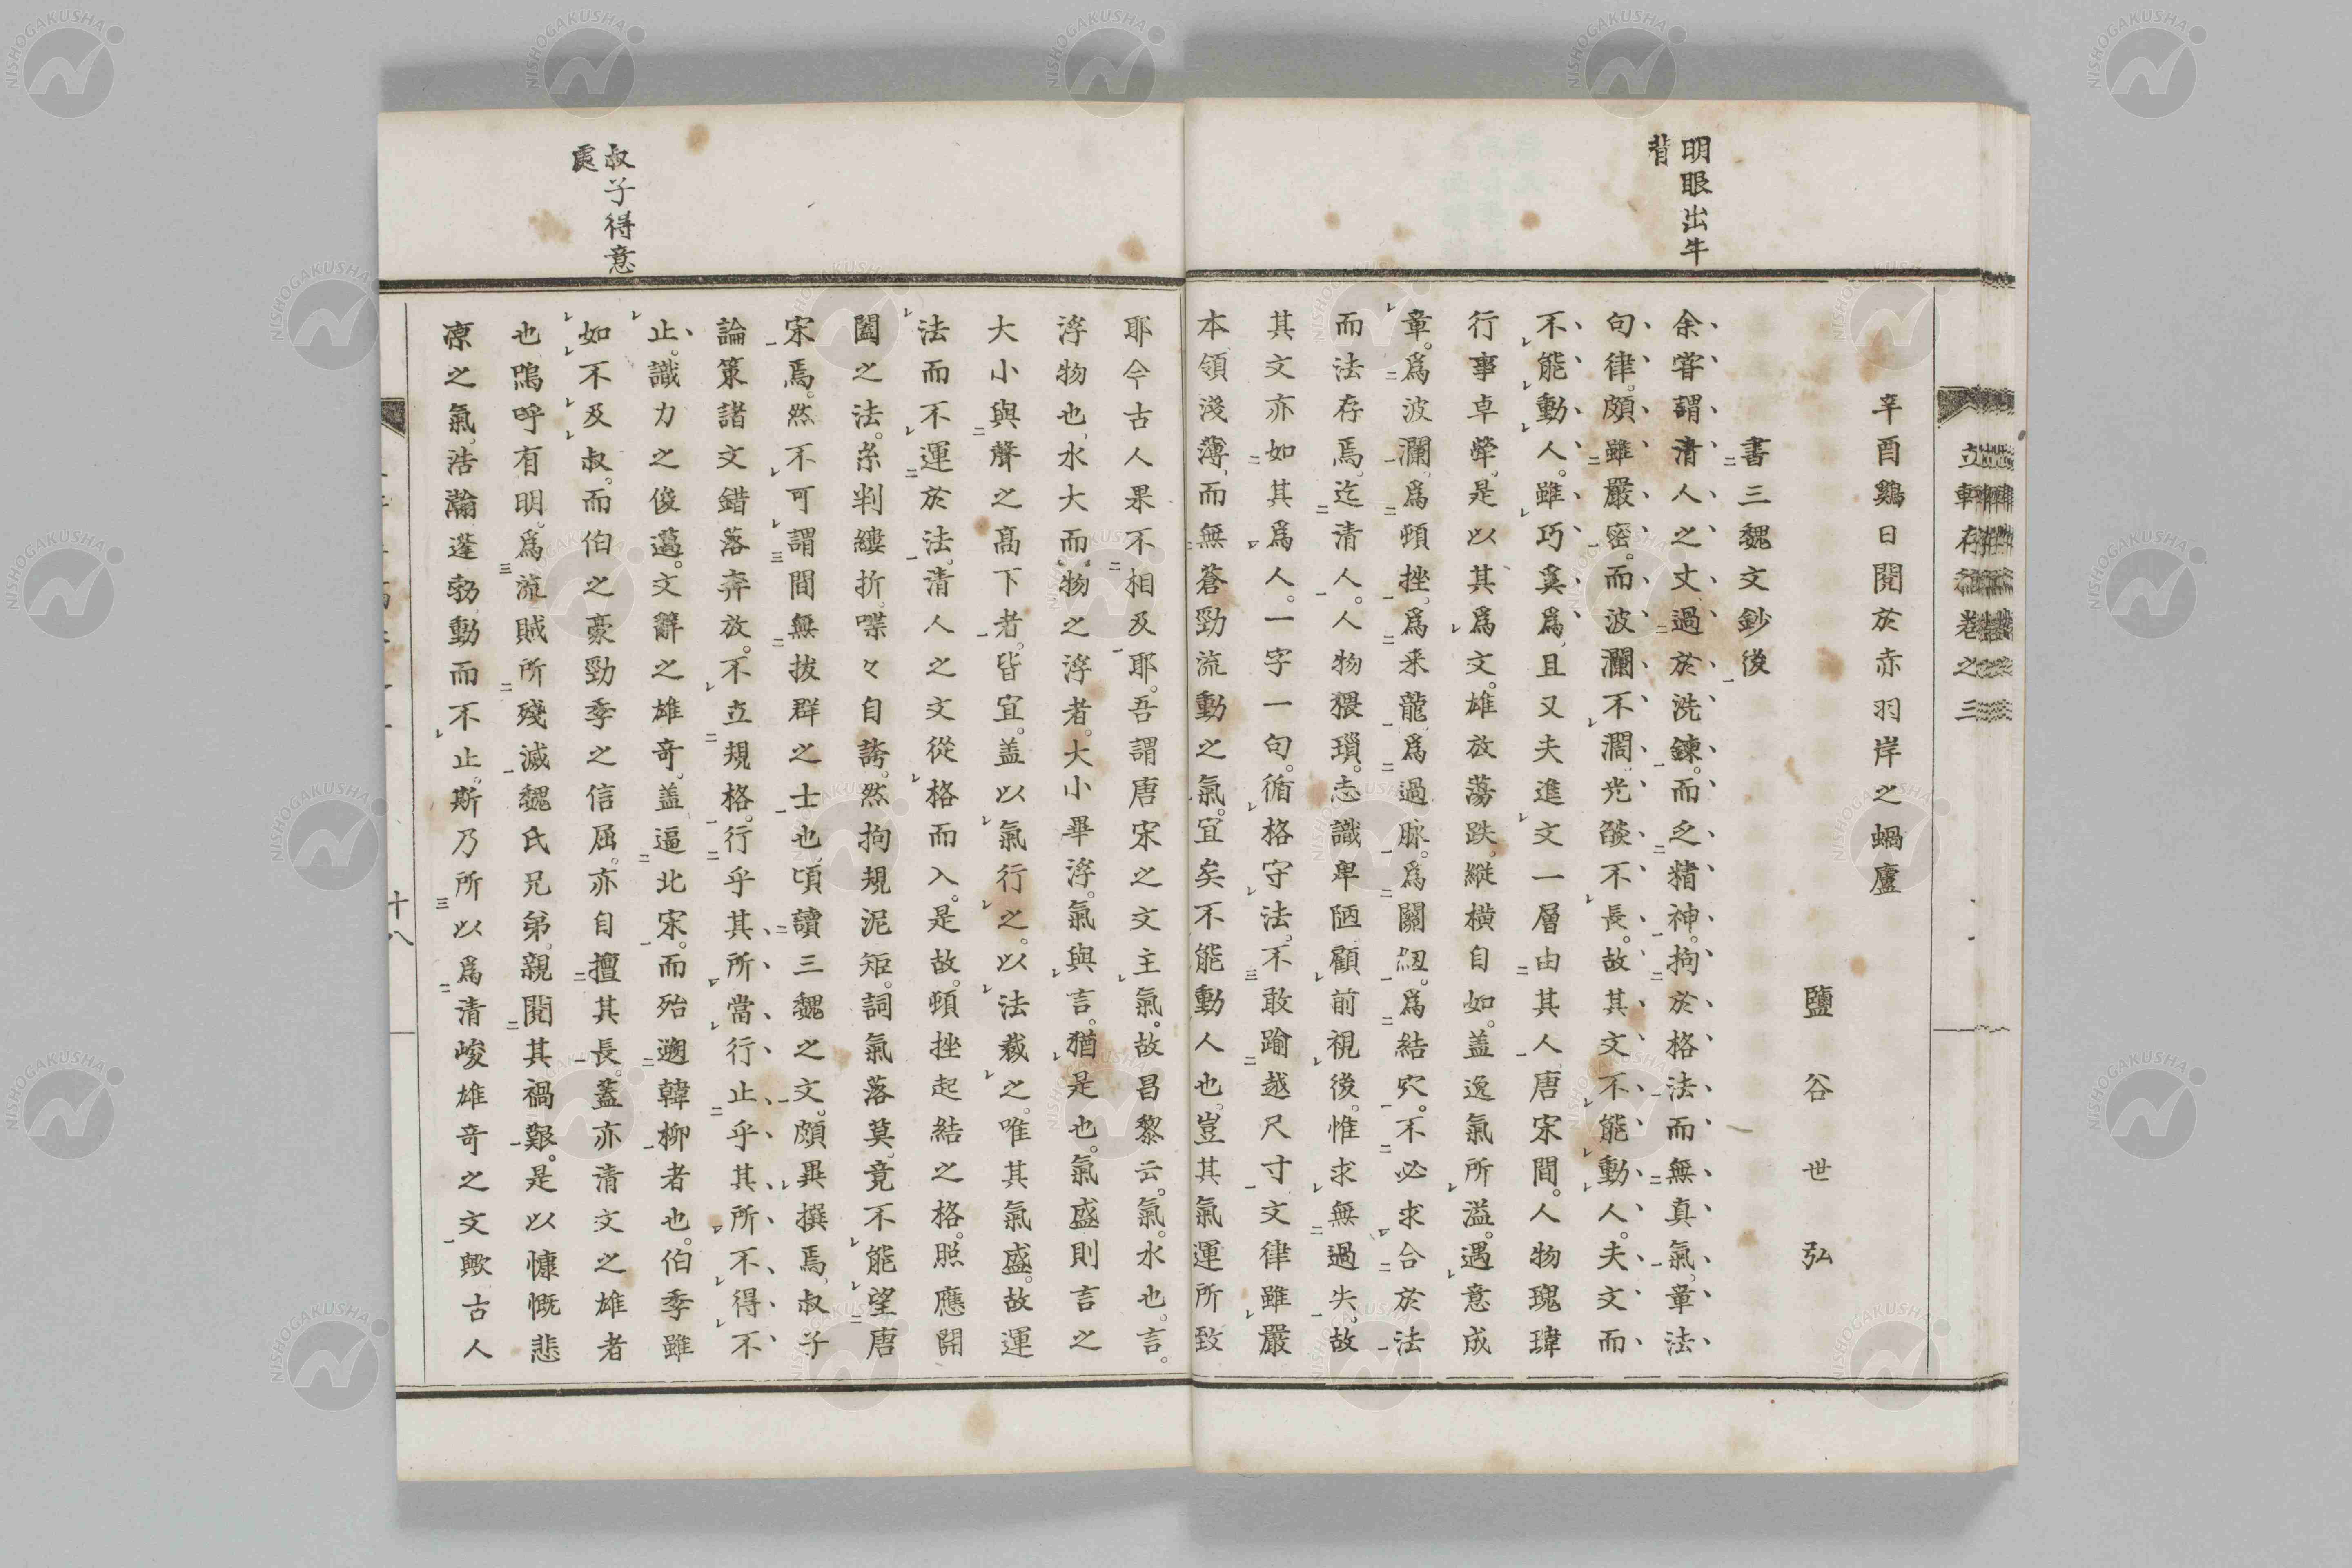 立軒存稿卷之三
明眼出牛
背
辛酉鷄日閱於赤羽岸之蝸廬
鹽谷世弘
書三魏文鈔後
余甞謂清人之文過於洗鍊。而乏精神。拘於格法而無真氣。章法
句律。頗雖嚴密。而波瀾不濶。光燄不長。故其文不能動人。夫文而
不能動人。雖巧奚爲。且又夫進文一層由其人唐宋間。人物瑰瑋
行事卓犖。是以其爲文。雄放蕩跌。縱橫自如。盖逸氣所溢。遇意成
章。爲波瀾。爲頓挫。爲来龍。爲過脉。爲關紐。爲結穴。不必求合於法
而法存焉。迄清人。人物猥瑣。志識卑陋顧前視後。惟求無過失。故
其文亦如其爲人。一字一句。循格守法。不敢踰越尺寸文律雖嚴
本領淺薄。而無蒼勁流動之氣。宜矣不能動人也。豈其氣運所致
耶今古人果不相及耶。吾謂唐宋之文主氣。故昌黎云。氣。水也。言。
浮物也。水大而物之浮者。大小畢浮。氣與言。猶是也。氣盛則言之
大小與聲之高下者。皆宜。盖以氣行之。以法裁之。唯其氣盛。故運
法而不運於法。清人之文從格而入。是故。頓挫起結之格。照應開
闔之法。条判縷折。喋々自誇。然拘規泥矩。詞氣落莫。竟不能望唐
宋焉。然不可謂間無拔群之士也。頃讀三魏之文。頗異撰焉。叔子
論策諸文錯落奔放。不立規格。行乎其所當行止乎其所不得不
止。識力之俊邁。文辭之雄奇。盖逼北宋。而殆遡韓柳者也。伯季雖
如不及叔。而伯之豪勁季之信屈。亦自擅其長。蓋亦清文之雄者
也。嗚呼有明。爲流賊所殘滅魏氏兄弟。親閱其禍艱。是以慷慨悲
凉之氣。浩瀚蓬勃。動而不止。斯乃所以爲清峻雄奇之文歟古人
叔子得意
處
十八